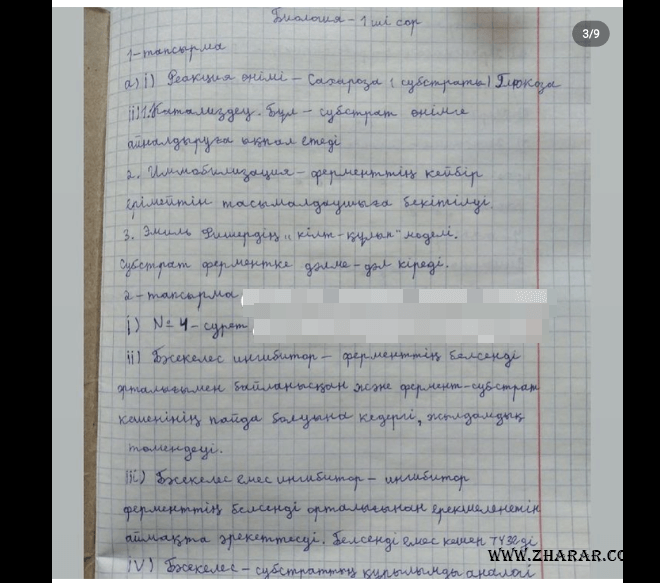 3/9
Биология - 1 ші сор
1-тапсырма
а) i) Реакция өнімі - Сахароза (субстраты) Глюкоза
ii) 1. Катализдеу. Бұл - субстрат өнімге
айналдыруға ықпал етеді
2. Иммобилизация - ферменттің кейбір
ерімейтін тасымалдаушыға бекітілуі
3. Эмиль Фишердің "кілт-құлып" моделі.
Субстрат ферментке дәлме-дәл кіреді.
2-тапсырма
i) № 4 - сурет
ii) Бәсекелес ингибитор - ферменттің белсенді
орталығымен байланысқан және фермент-субстрат
кешенінің пайда болуына кедергі, жылдамдық
төмендеуі.
iii) Бәсекелес емес ингибитор - ингибитор
ферменттің белсенді орталығынан ерекшеленетін
аймақта әрекеттесуі. Белсенді емес кешен түзеді
WWW.ZHARAR.CO
iv) Бәсекелес - субстраттың құрылымды аналогі